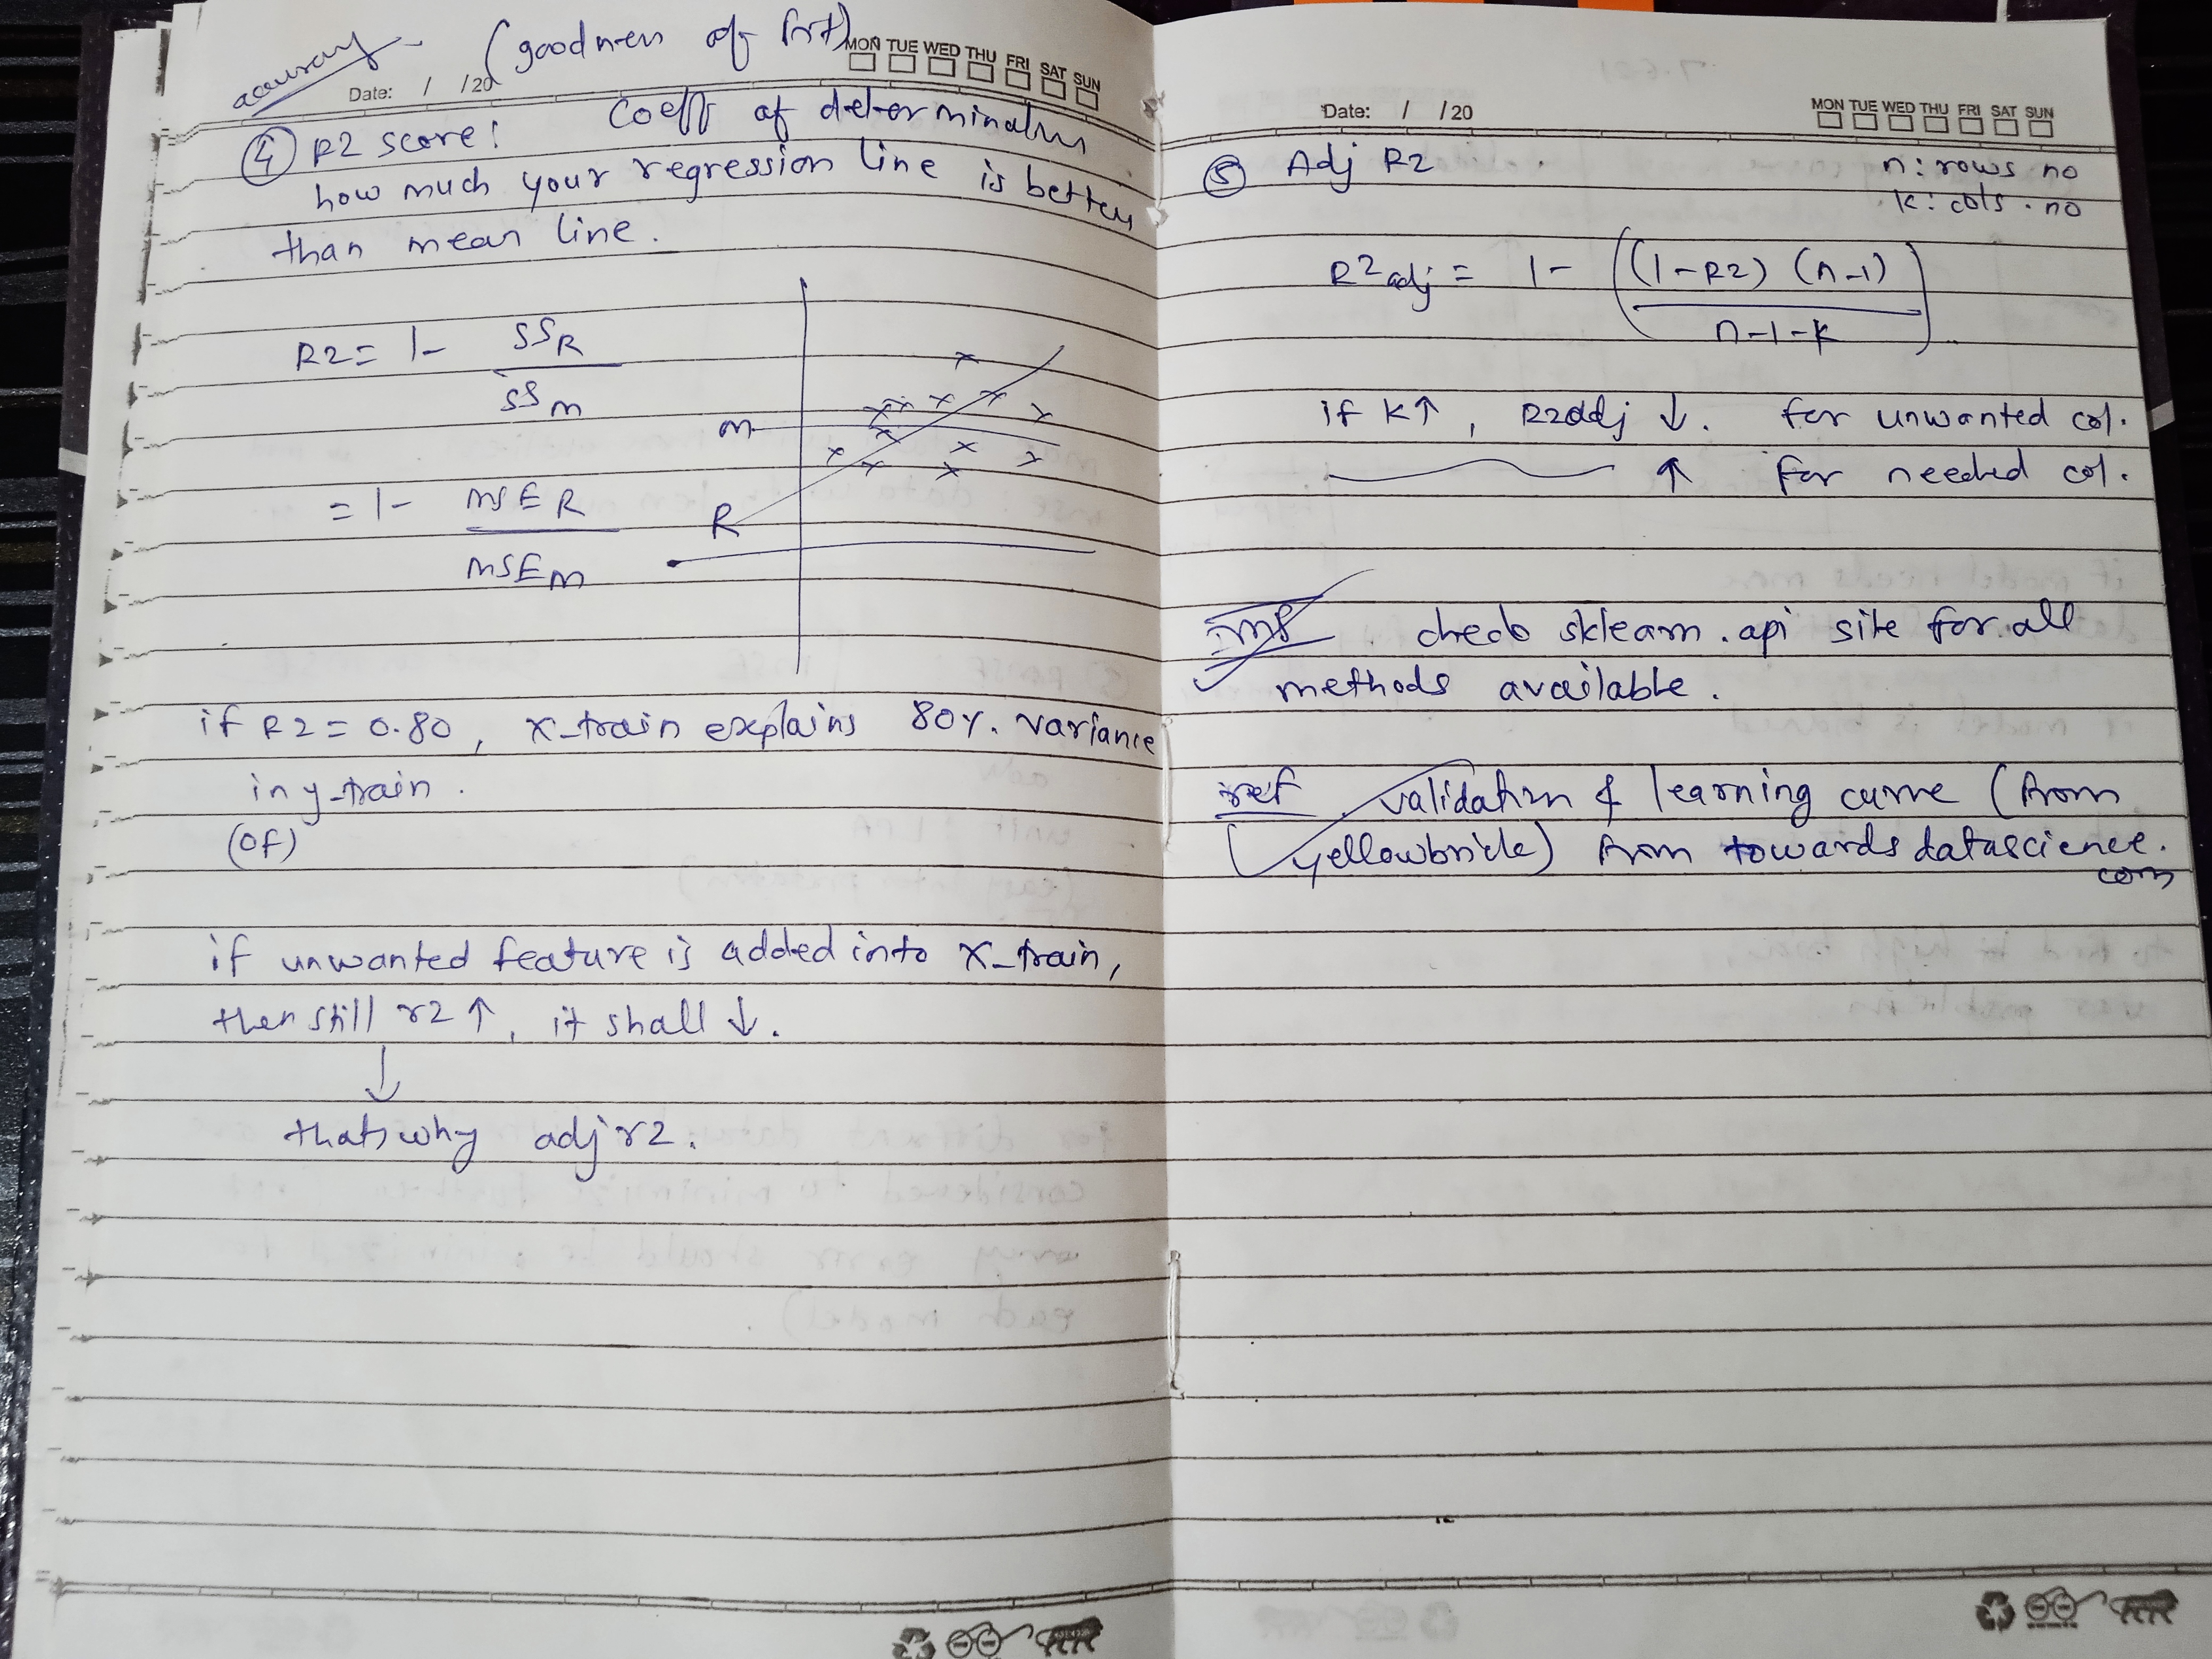 accuracy (goodness of fit)
MON TUE WED THU FRI SAT SUN
Date: / /20
④ R2 score: Coeff of determination
how much your regression line is better
than mean line.
R2 = 1 - SSR / SSm
m
= 1 - MSER / MSEm
R
if R2 = 0.80, x-train explains 80%. variance
in y-train.
(of)
if unwanted feature is added into x-train,
then still r2 ↑, it shall ↓.
↓
thats why adj r2.
Date: / /20
MON TUE WED THU FRI SAT SUN
⑤ Adj R2 n: rows no
k: cols. no
R2adj = 1 - ((1-R2) (n-1) / n-1-k)
if k↑, R2adj ↓. for unwanted col.
↑ for needed col.
imp check sklearn.api site for all
methods available.
ref validation & learning curve (from
(yellowbrick) from towardsdatascience.
com